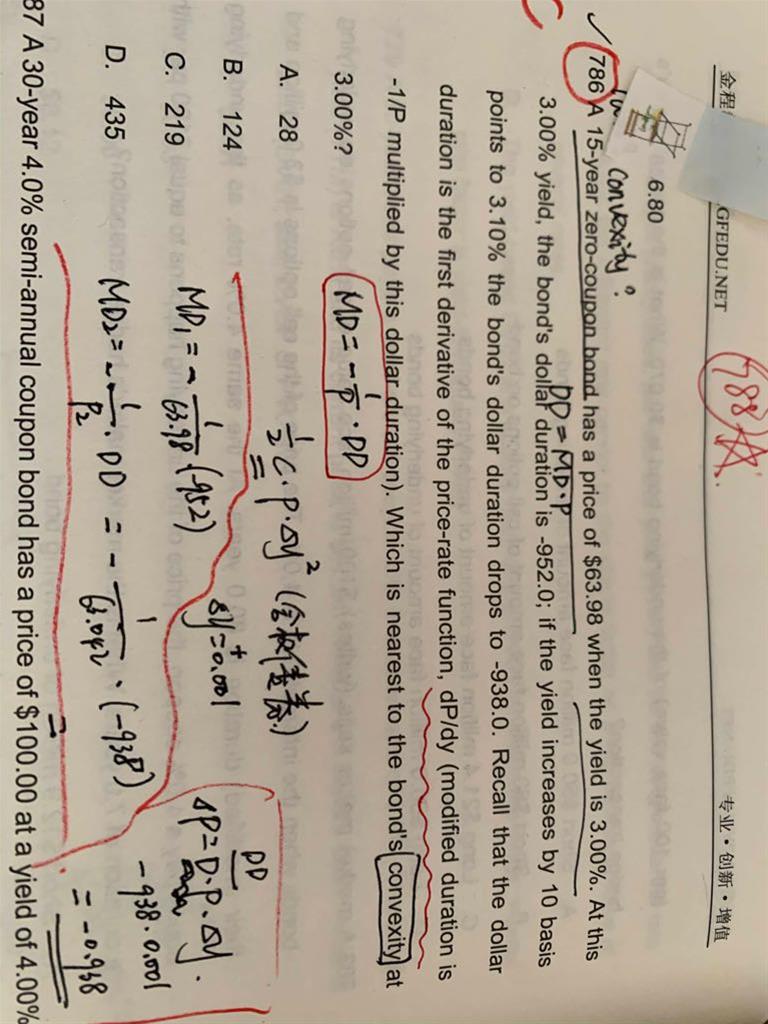 金程
GFEDU.NET
专业·创新·增值
788
6.80
convexity?
786 A 15-year zero-coupon bond has a price of $63.98 when the yield is 3.00%. At this
DD = MD·P
3.00% yield, the bond's dollar duration is -952.0; if the yield increases by 10 basis
points to 3.10% the bond's dollar duration drops to -938.0. Recall that the dollar
duration is the first derivative of the price-rate function, dP/dy (modified duration is
-1/P multiplied by this dollar duration). Which is nearest to the bond's convexity at
3.00%?
A. 28
B. 124
C. 219
D. 435
MD = -1/P · DD
1/2 C·P·Δy²
MD₁ = - 1/63.98 (-952)
Δy = 0.001
MD₂ = - 1/P₂ · DD = - 1/63.042 · (-938)
DD
ΔP = D·P·Δy.
-938·0.001
= -0.938
87 A 30-year 4.0% semi-annual coupon bond has a price of $100.00 at a yield of 4.00%